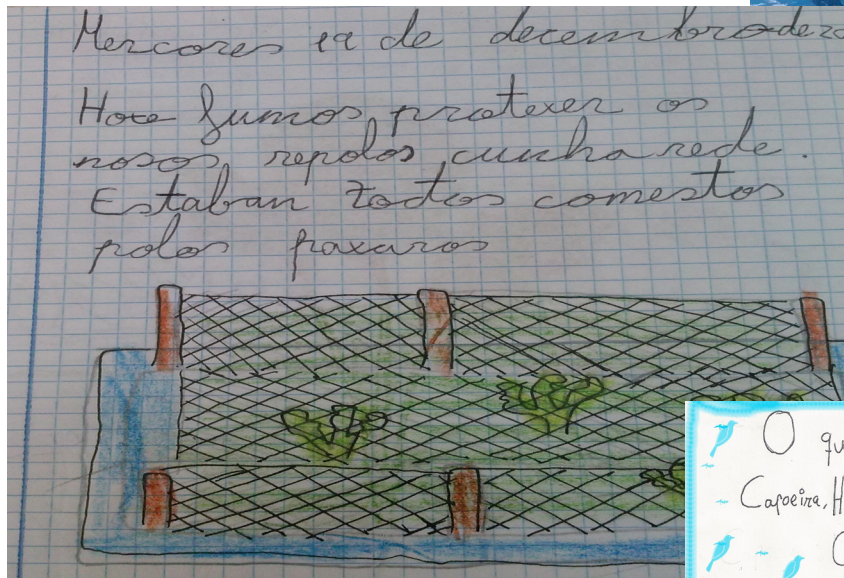 Mercores 19 de decembro de 20
Hoxe fumos protexer os
nosos repolos cunha rede.
Estaban todos comestos
polos paxaros
O qu
Capoeira, H